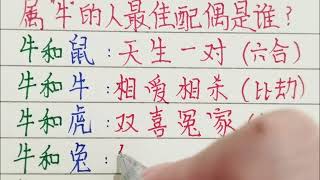 属"牛"的人最佳配偶是谁？
牛和鼠：天生一对（六合）
牛和牛：相爱相杀（比劫）
牛和虎：双喜冤家（
牛和兔：